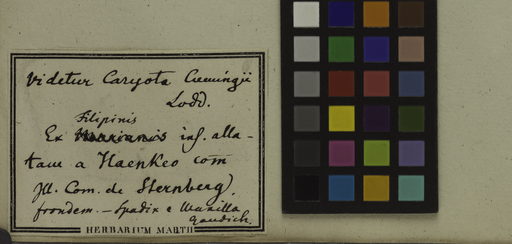 Videtur Caryota Cumingii
Lodd.
Filipinis
Ex Marianis ins. alla-
tam a Haenkeo com
Ill. Com. de Sternberg).
frondem. – Spadix e Manilla
Gaudich.
HERBARIUM MARTII